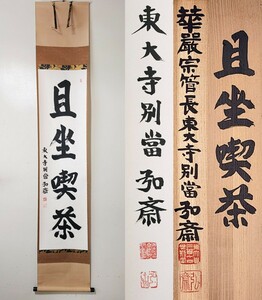 且坐喫茶
東大寺別當弘斎
東大寺別當弘斎
華嚴宗管長東大寺別當弘斎
且坐喫茶